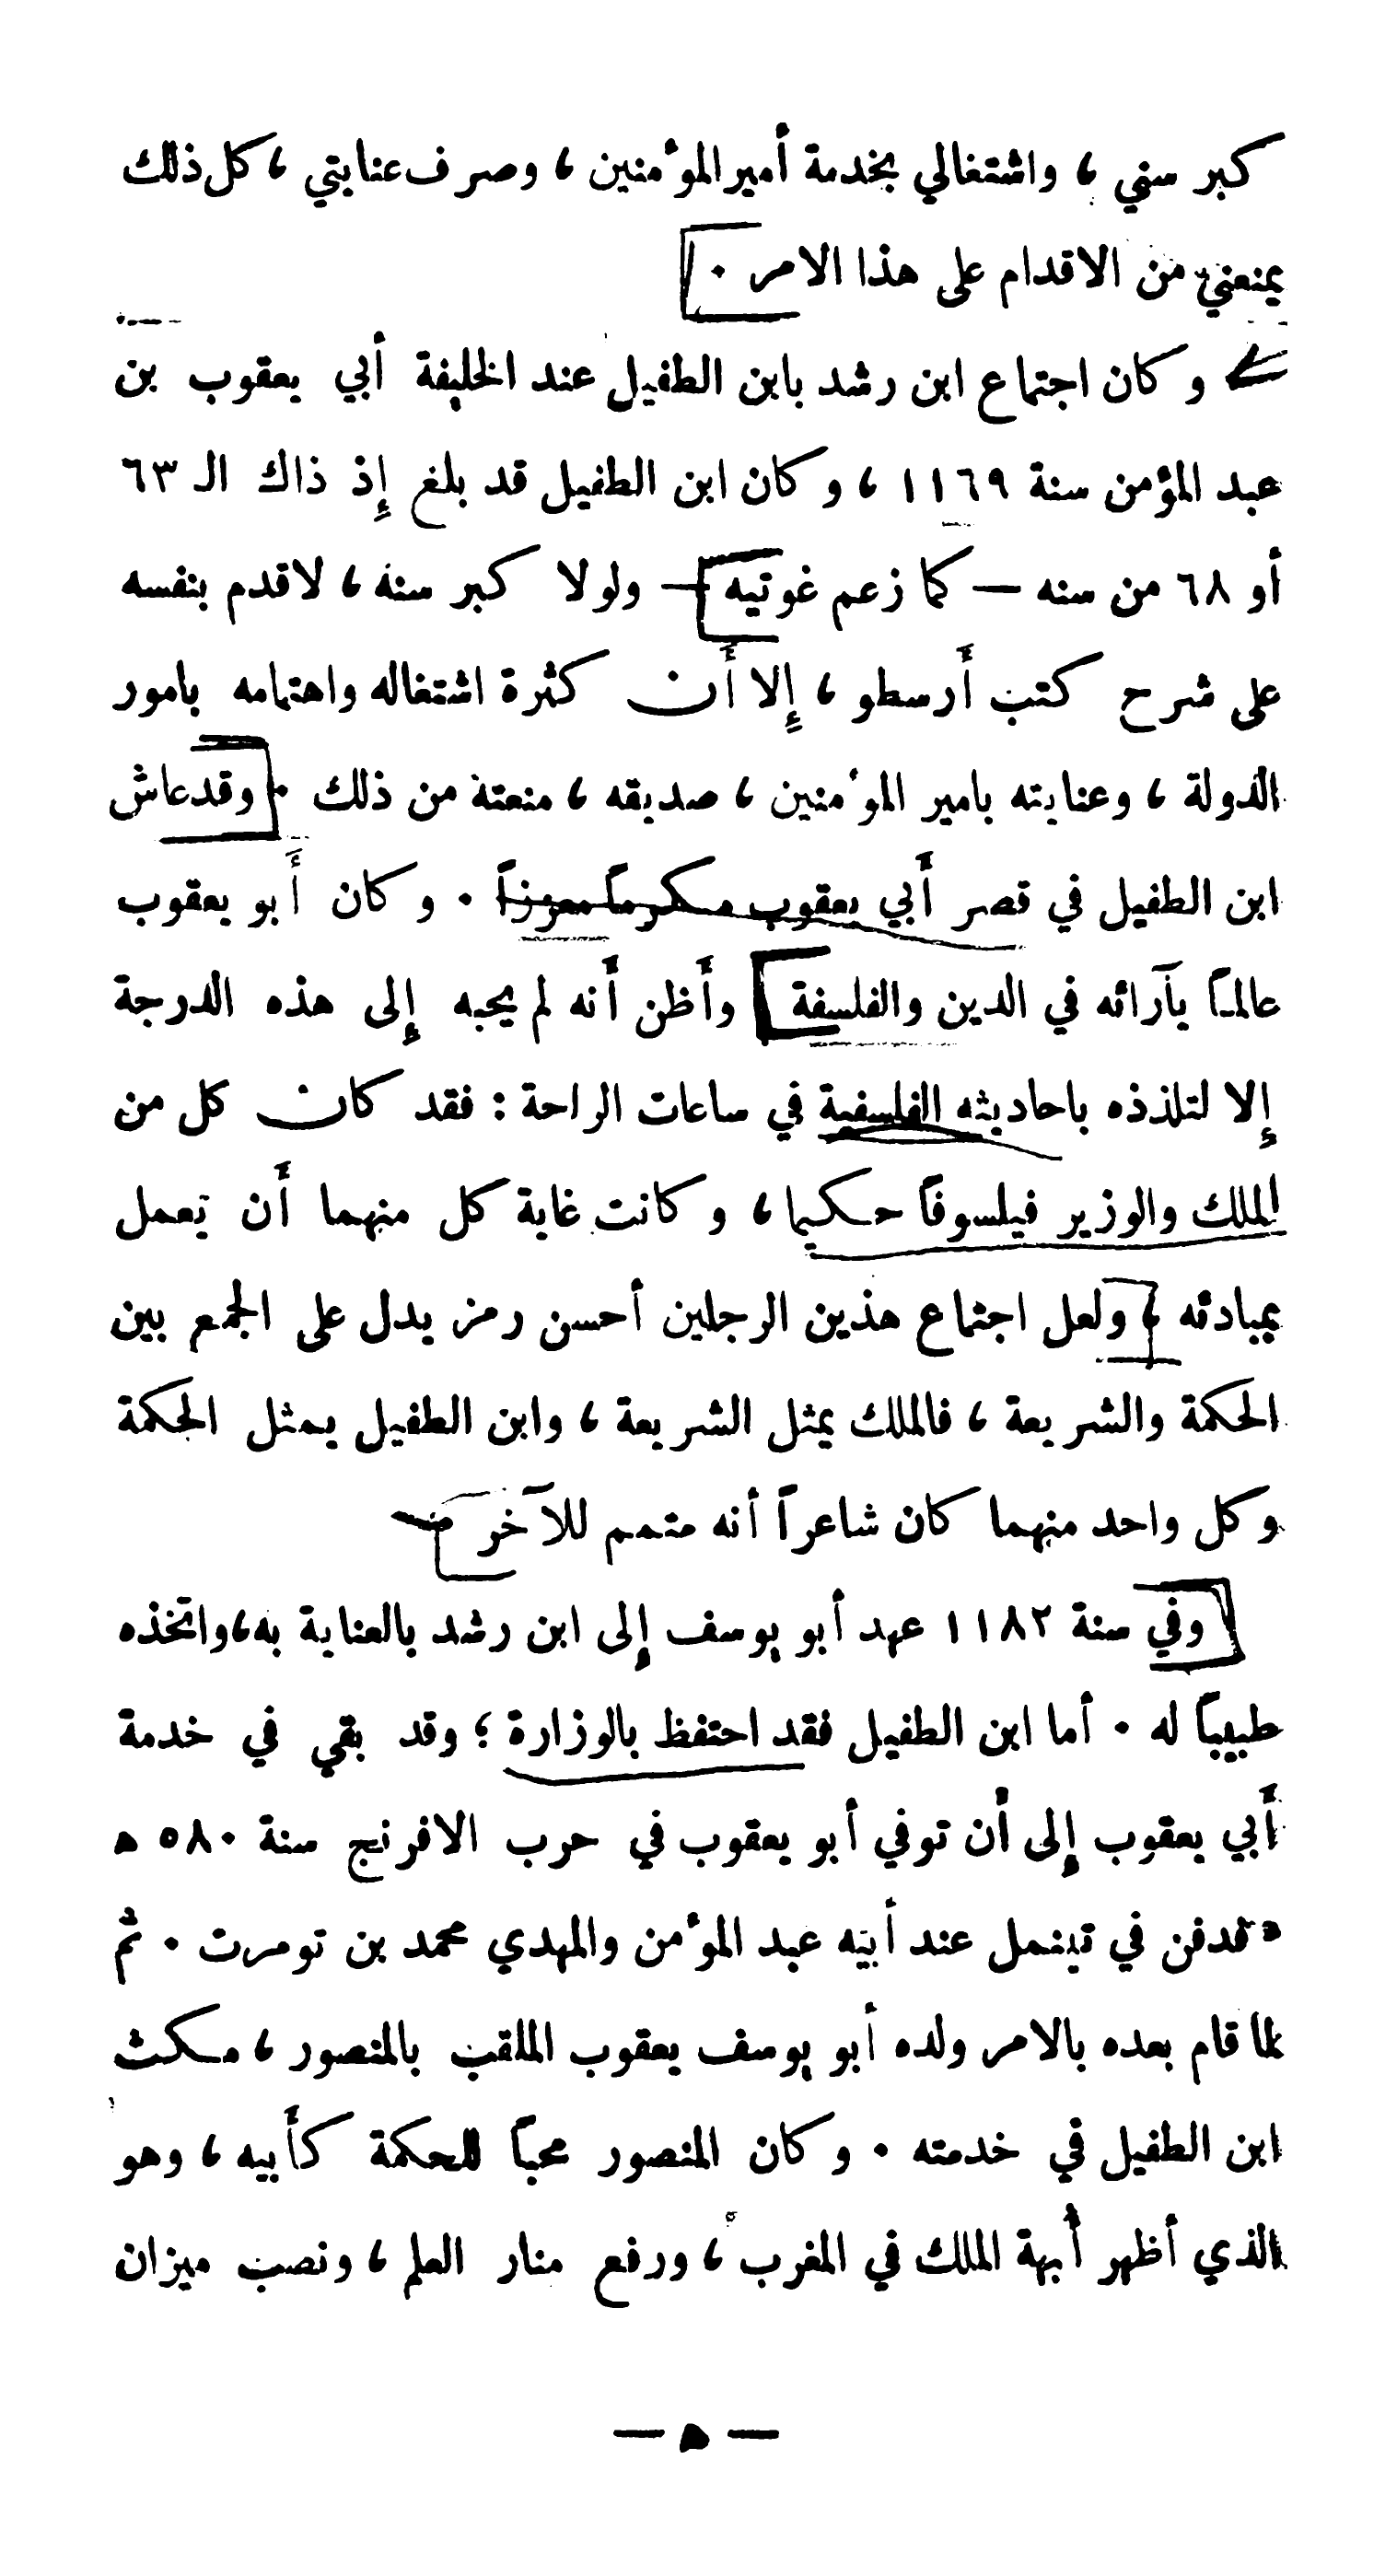 كبر سني ، واشتغالي بخدمة أمير المؤمنين ، وصرف عنايتي ، كل ذلك
يمنعني من الاقدام على هذا الامر .
وكان اجتماع ابن رشد بابن الطفيل عند الخليفة أبي يعقوب بن
عبد المؤمن سنة ١١٦٩ ، وكان ابن الطفيل قد بلغ إذ ذاك الـ ٦٣
أو ٦٨ من سنه — كما زعم غوتيه — ولولا كبر سنه ، لاقدم بنفسه
على شرح كتب أرسطو ، إلا أن كثرة اشتغاله واهتمامه بامور
الدولة ، وعنايته بامير المؤمنين ، صديقه ، منعته من ذلك . وقد عاش
ابن الطفيل في قصر أبي يعقوب مكرماً معززاً . وكان أبو يعقوب
عالماً بآرائه في الدين والفلسفة وأظن أنه لم يحبه إلى هذه الدرجة
إلا لتلذذه باحاديثه الفلسفية في ساعات الراحة : فقد كان كل من
الملك والوزير فيلسوفاً حكيما ، وكانت غاية كل منهما أن تعمل
بمبادئه ، ولعل اجتماع هذين الرجلين أحسن رمز يدل على الجمع بين
الحكمة والشريعة ، فالملك يمثل الشريعة ، وابن الطفيل يمثل الحكمة
وكل واحد منهما كان شاعراً أنه متمم للآخر
وفي سنة ١١٨٢ عهد أبو يوسف إلى ابن رشد بالعناية به ، واتخذه
طبيباً له . أما ابن الطفيل فقد احتفظ بالوزارة ؛ وقد بقي في خدمة
أبي يعقوب إلى أن توفي أبو يعقوب في حرب الافرنج سنة ٥٨٠ ه
فدفن في تينمل عند أبيه عبد المؤمن والمهدي محمد بن تومرت . ثم
لما قام بعده بالامر ولده أبو يوسف يعقوب الملقب بالمنصور ، مكث
ابن الطفيل في خدمته . وكان المنصور محباً للحكمة كأبيه ، وهو
الذي أظهر أبهة الملك في المغرب ، ورفع منار العلم ، ونصب ميزان
— ٥ —